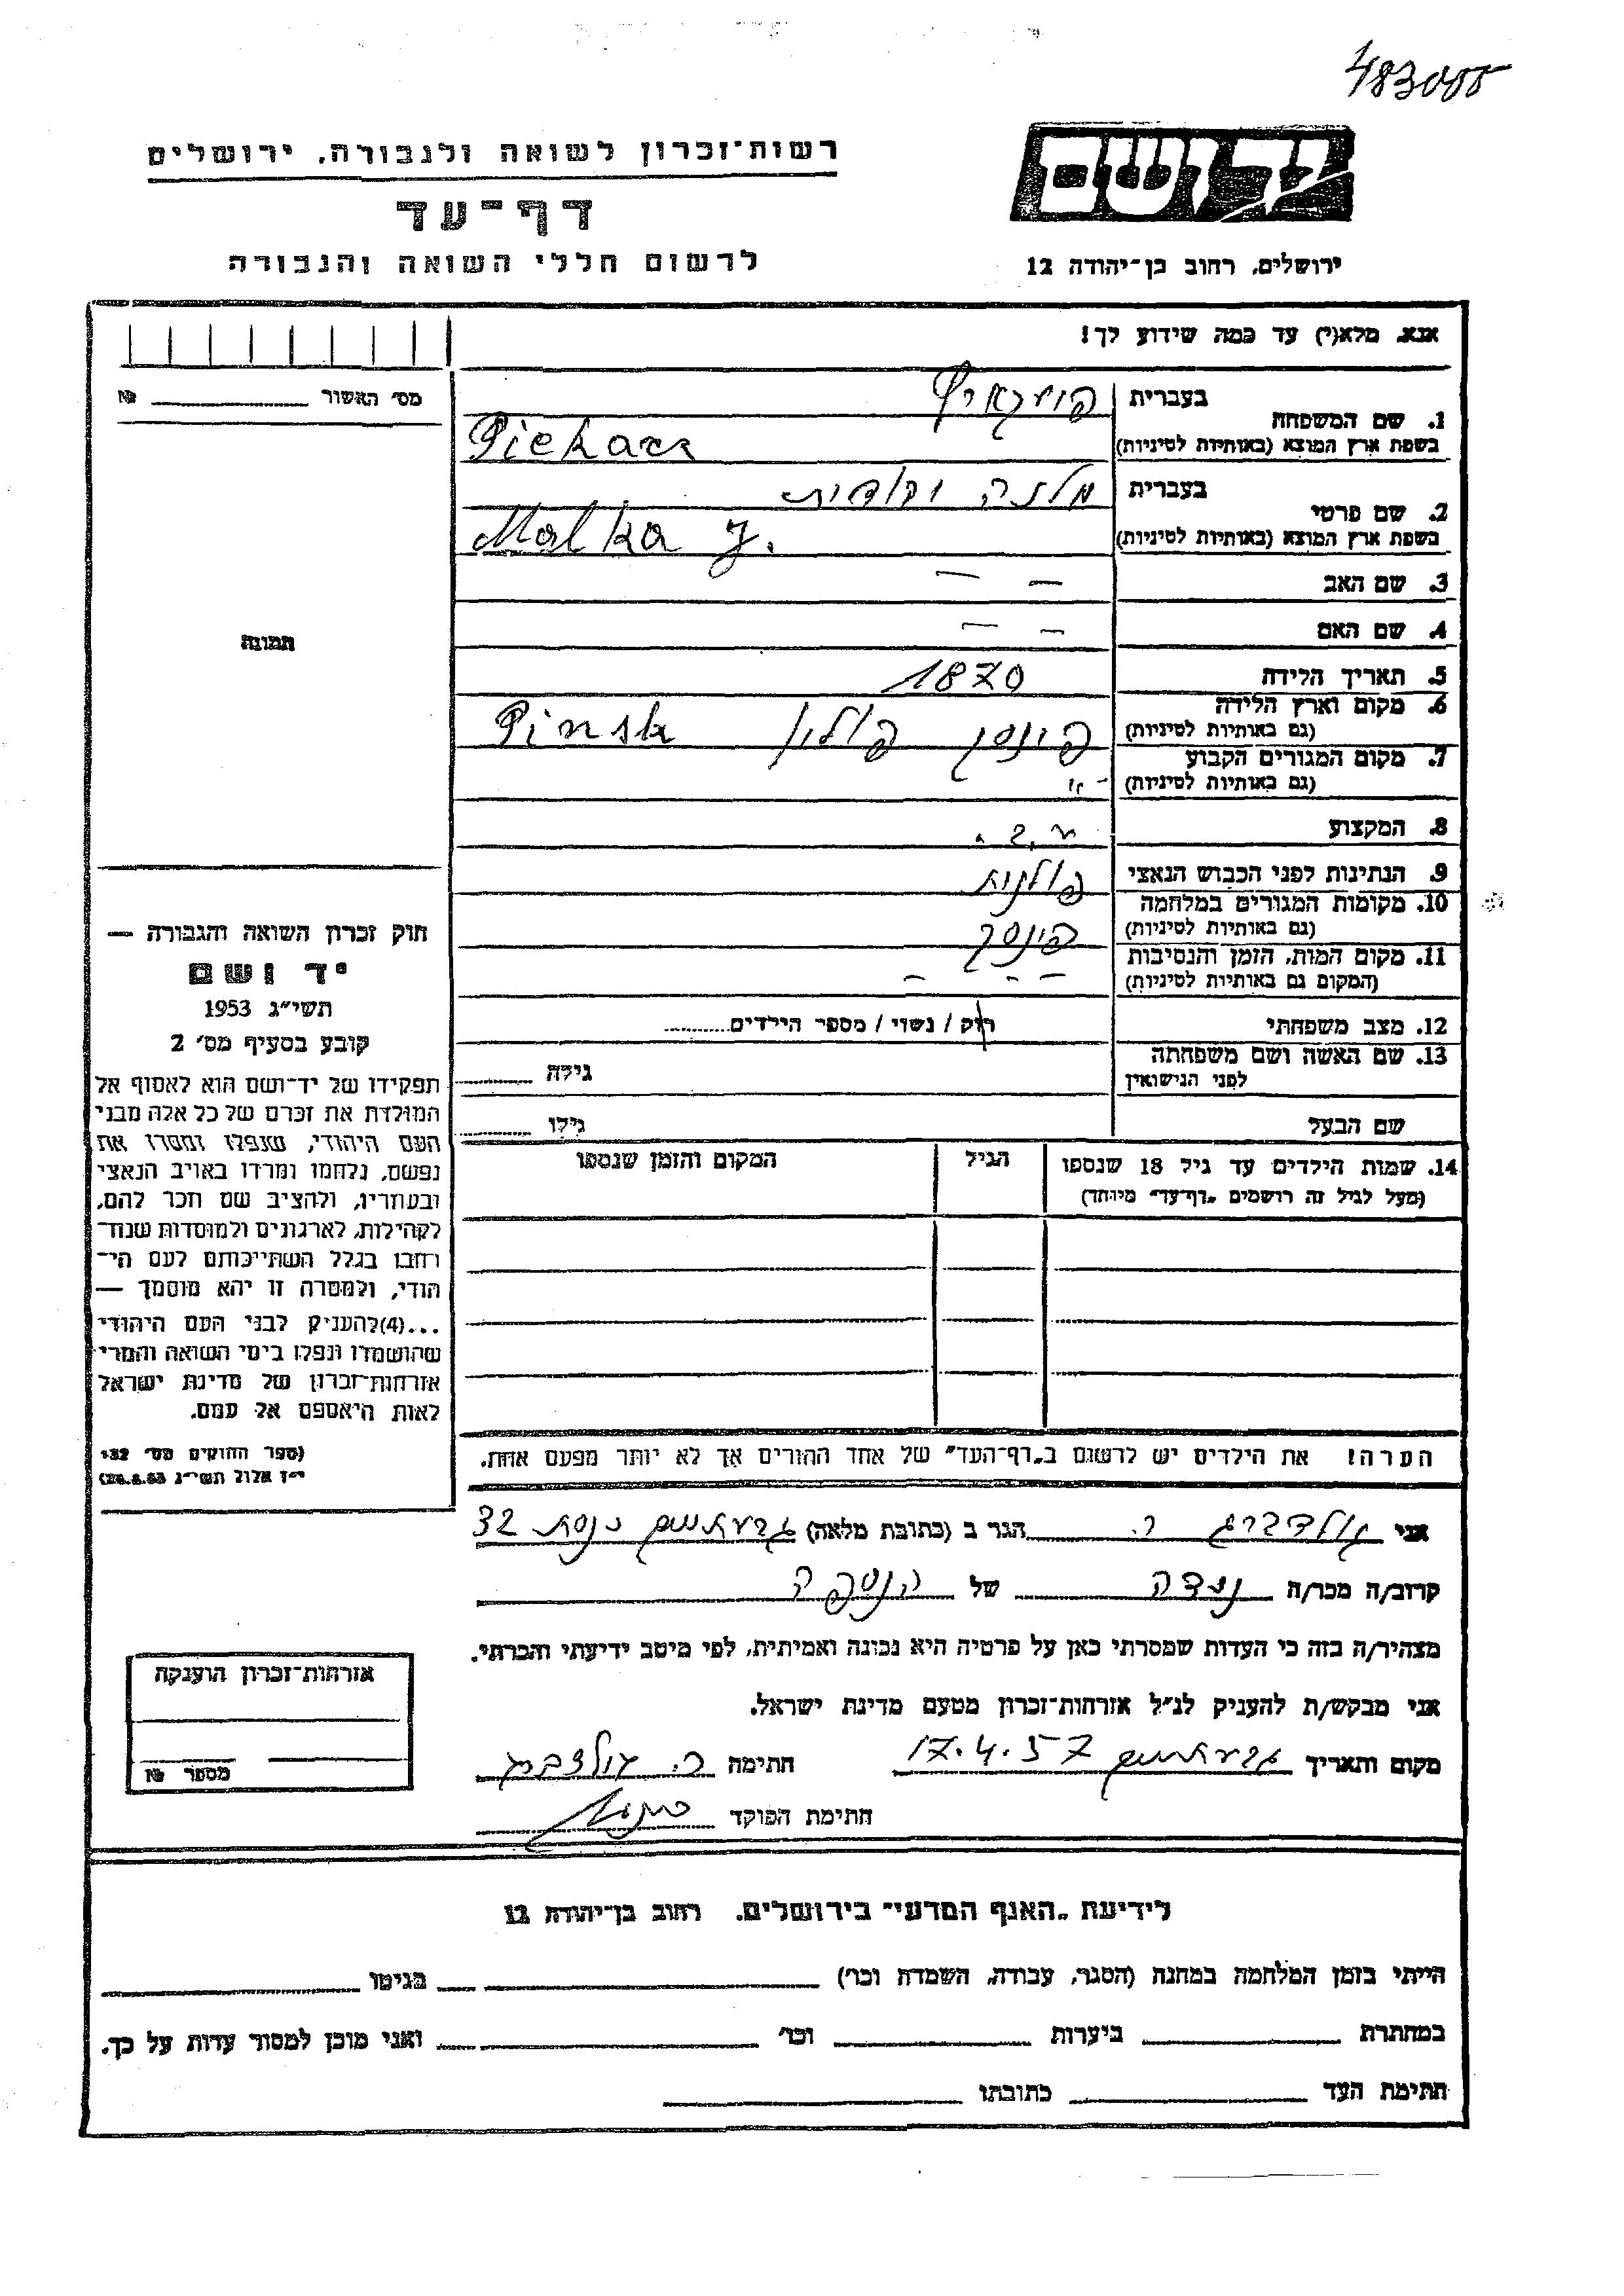 483000
יד ושם
רשות־זכרון לשואה ולגבורה, ירושלים
דף־עד
לרשום חללי השואה והגבורה
ירושלים, רחוב בן־יהודה 12
אנא, מלא(י) עד כמה שידוע לך!
מס׳ האשור № 
1. שם המשפחה
בעברית
בשפת ארץ המוצא (באותיות לטיניות) Piekarz
2. שם פרטי
בעברית מלכה יהודית
בשפת ארץ המוצא (באותיות לטיניות) Malka J.
3. שם האב — —
4. שם האם — —
5. תאריך הלידה 1870
6. מקום וארץ הלידה
(גם באותיות לטיניות) פינסק פולין Pinsk
7. מקום המגורים הקבוע
(גם באותיות לטיניות) - " -
8. המקצוע
9. הנתינות לפני הכבוש הנאצי פולנית
10. מקומות המגורים במלחמה
(גם באותיות לטיניות) פינסק
11. מקום המות, הזמן והנסיבות
(המקום גם באותיות לטיניות) — — —
12. מצב משפחתי רוק / נשוי / מספר הילדים
13. שם האשה ושם משפחתה
לפני הנישואין
גילה
שם הבעל
גילו
14. שמות הילדים עד גיל 18 שנספו
(מעל לגיל זה רושמים „דף־עד" מיוחד)
הגיל
המקום והזמן שנספו
הערה! את הילדים יש לרשום ב„דף־העד" של אחד ההורים אך לא יותר מפעם אחת.
תמונה
חוק זכרון השואה והגבורה —
יד ושם
תשי״ג 1953
קובע בסעיף מס׳ 2
תפקידו של יד־ושם הוא לאסוף אל
המולדת את זכרם של כל אלה מבני
העם היהודי, שנפלו ומסרו את
נפשם, נלחמו ומרדו באויב הנאצי
ובעוזריו, ולהציב שם וזכר להם,
לקהילות, לארגונים ולמוסדות שנח־
רחבו בגלל השתייכותם לעם הי־
הודי, ולמטרה זו יהא מוסמך —
...(4)להעניק לבני העם היהודי
שהושמדו ונפלו בימי השואה והמרי
אזרחות־זכרון של מדינת ישראל
לאות היאספם אל עמם.
(ספר החוקים מס׳ 132
י״ז אלול תשי״ג 28.8.53)
אני גולדברג ר. הגר ב (כתובת מלאה) גבעתיים כנסת 32
קרוב/ה מכר/ה נכדה של הנספה
מצהיר/ה בזה כי העדות שמסרתי כאן על פרטיה היא נכונה ואמיתית, לפי מיטב ידיעתי והכרתי.
אני מבקש/ת להעניק לנ״ל אזרחות־זכרון מטעם מדינת ישראל.
מקום ותאריך גבעתיים 17.4.57 חתימה ר. גולדברג
חתימת הפוקד
אזרחות־זכרון הוענקה
מספר №
לידיעת „האגף המדעי" בירושלים, רחוב בן־יהודה 12
הייתי בזמן המלחמה במחנה (הסגר, עבודה, השמדה וכו׳) בגיטו
במחתרת ביערות וכו׳ ואני מוכן למסור עדות על כך.
חתימת העד כתובתו